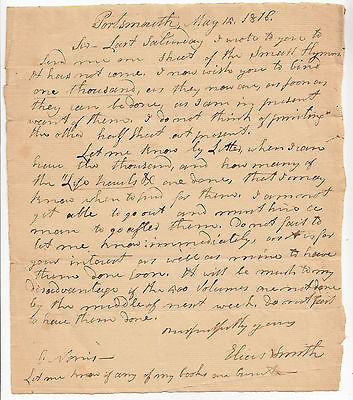 Portsmouth, May 12. 1818.
Sir - Last Saturday I wrote to you to
send me one sheet of the Small Hymns
It has not come. I now wish you to bind
one thousand, as they now are, as soon as
they can be done, as I am in present
want of them. I do not think of printing
the other half sheet at present.
Let me know by Letter, when I can
have the thousand, and how many of
the "Life &c are done, that I may
know when to send for them. I am not
yet able to go out and must hire a
man to go after them. Do not fail to
let me, know immediately, as it is for
your interest as well as mine to have
them done soon. It will be much to my
disadvantage if the 400 volumes are not done
by the middle of next week. Do not fail
to have them done.
Respectfully yours
Elias Smith
Norris
Let me know if any of my books are